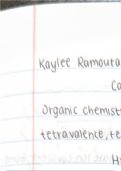 Kaylee Ramouta
Ca
Organic chemist
tetravalence, te
H